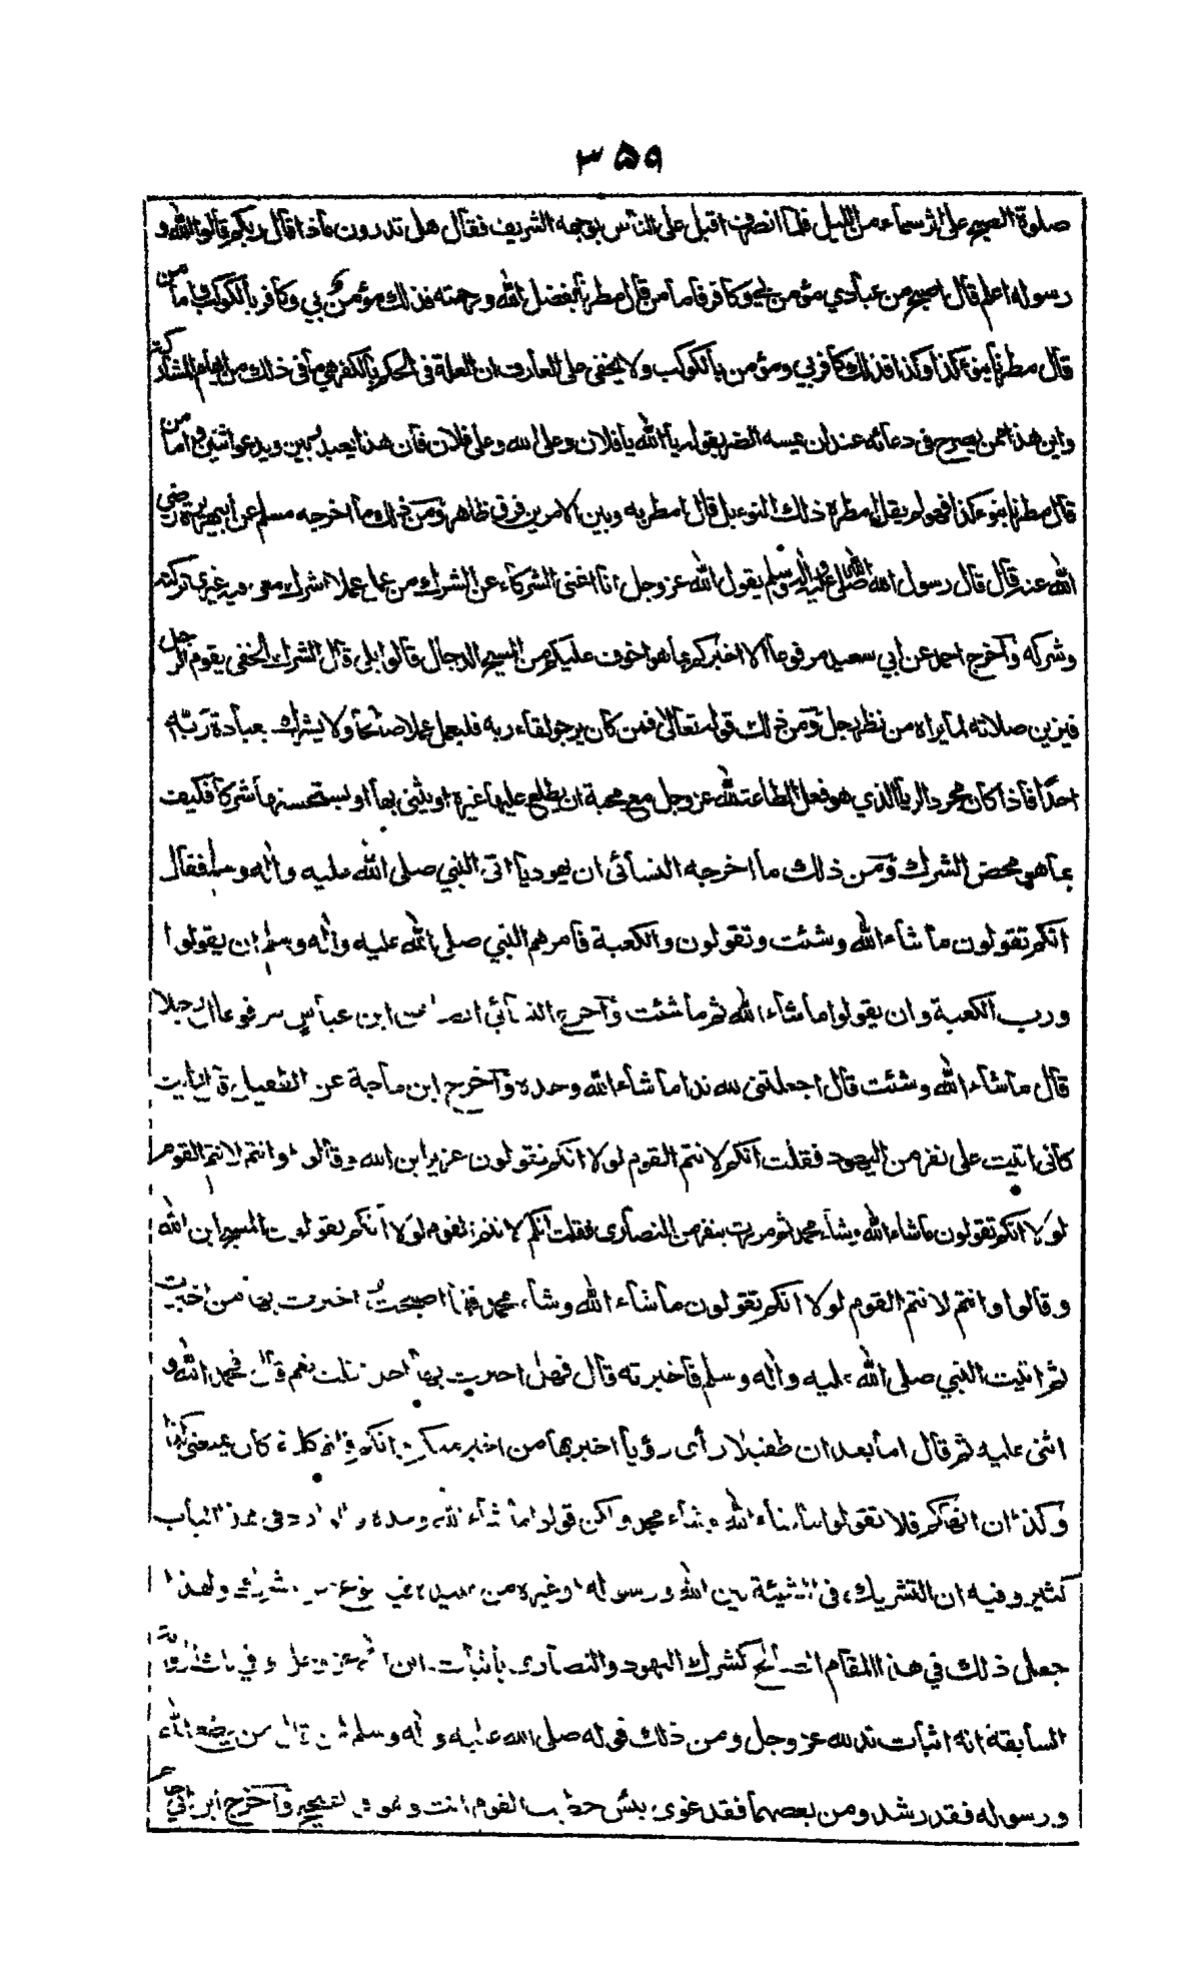 ۳۵۹
صلوة الصبح على اثر سماء من الليل فلما انصرف اقبل على الناس بوجهه الشريف فقال هل تدرون ماذا قال ربكم قالوا الله و
رسوله اعلم قال اصبح من عبادي مؤمن بي وكافر فاما من قال مطرنا بفضل الله ورحمته فذلك مؤمن بي وكافر بالكوكب واما من
قال مطرنا بنوء كذا وكذا فذلك كافر بي ومؤمن بالكوكب ولا يخفى على العارف ان العلة في الحكم بالكفر هي ما في ذلك من ايهام المشاركة
واين هذا ممن يصرح في دعائه عند ان يمسه الضر بقوله يا الله يا فلان وعلى الله وعلى فلان فان هذا يعبد ربين ويدعو اثنين واما من
قال مطرنا بنوء كذا فهو لم يقل امطره ذلك النوء بل قال امطر به وبين الامرين فرق ظاهر ومن ذلك ما اخرجه مسلم عن ابي هريرة رضي
الله عنه قال قال رسول الله صلى الله عليه وآله وسلم يقول الله عز وجل انا اغنى الشركاء عن الشرك من عمل عملا اشرك معي فيه غيري تركته
وشركه وآخرج احمد عن ابي سعيد مرفوعا الا اخبركم بما هو اخوف عليكم من المسيح الدجال قالوا بلى قال الشرك الخفي يقوم الرجل
فيزين صلاته لما يراه من نظر رجل ومن ذلك قوله تعالى فمن كان يرجو لقاء ربه فليعمل عملا صالحا ولا يشرك بعبادة ربه
احدا فاذا كان مجرد الريا الذي هو فعل الطاعة لله عز وجل مع محبة ان يطلع عليها غيره او يثني بها او يستحسنها شركا فكيف
بما هو محض الشرك ومن ذلك ما اخرجه النسائى ان يهوديا اتى النبي صلى الله عليه وآله وسلم فقال
انكم تقولون ما شاء الله وشئت وتقولون والكعبة فامرهم النبي صلى الله عليه وآله وسلم ان يقولوا
ورب الكعبة وان يقولوا ما شاء الله ثم ما شئت وآخرج النسائي ايضا عن ابن عباس مرفوعا ان رجلا
قال ما شاء الله وشئت قال اجعلتني لله ندا ما شاء الله وحده وآخرج ابن ماجة عن الطفيل قال رايت
كأني اتيت على نفر من اليهود فقلت انكم لانتم القوم لولا انكم تقولون عزير ابن الله وقالوا وانتم لانتم القوم
لولا انكم تقولون ما شاء الله وشاء محمد ثم مررت بنفر من النصارى فقلت انكم لانتم القوم لولا انكم تقولون المسيح ابن الله
وقالوا وانتم لانتم القوم لولا انكم تقولون ما شاء الله وشاء محمد فلما اصبحت اخبرت بها من اخبرت
ثم اتيت النبي صلى الله عليه وآله وسلم فاخبرته قال فهل اخبرت بها احدا قلت نعم قال فحمد الله و
اثنى عليه ثم قال اما بعد ان طفيلا رأى رؤيا اخبر بها من اخبر منكم وانكم قلتم كلمة كان يمنعني كذا
وكذا ان انهاكم فلا تقولوا ما شاء الله وشاء محمد ولكن قولوا ما شاء الله وحده في هذا الباب
كثير وفيه ان التشريك في المشيئة بين الله ورسوله او غيره من عبيده فيه نوع من الشرك ولهذا
جعل ذلك في هذا المقام الصالح كشرك اليهود والنصارى باثبات ابن لله عز وجل وفي
السابقة انه اثبات ند لله عز وجل ومن ذلك قوله صلى الله عليه وآله وسلم لمن قال من يطع الله
ورسوله فقد رشد ومن يعصهما فقد غوى بئس خطيب القوم انت وهو في الصحيح وآخرج ابن ابي حاتم